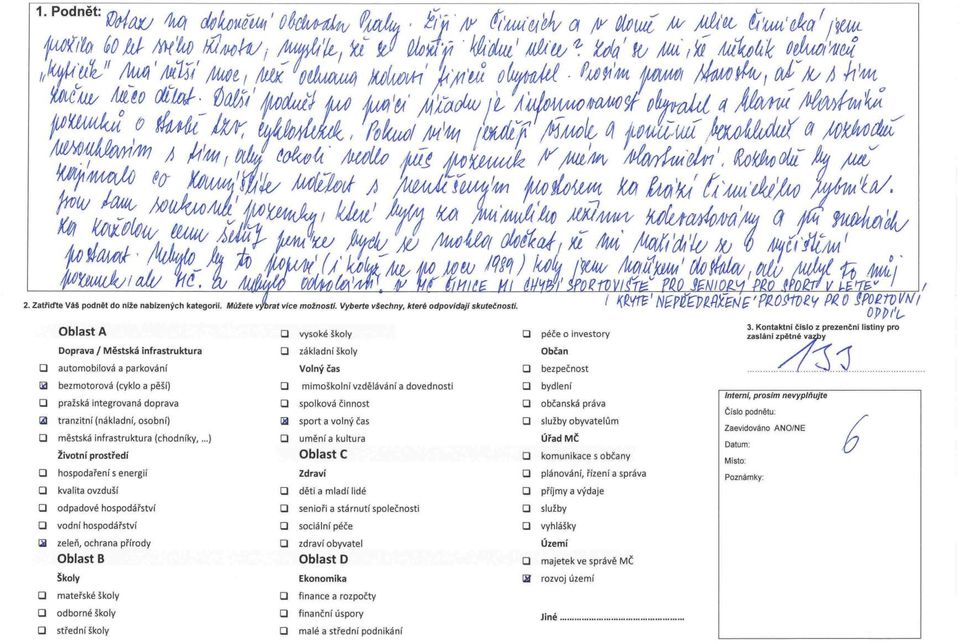 1. Podnět: Dotaz na dokončení obchvatu Prahy. Žiji v Čimicích a v domě v ulici Čimická jsem
prožila 60 let svého života, myslíte, že se dožiji klidné ulice? Zdá se mi, že několik ochranců
„kytiček" má větší moc, než ochrana zdraví tisíců obyvatel. Prosím pana starostu, ať se s tím
začne něco dělat. Další podnět pro práci úřadu je informovanost obyvatel a hlavně vlastníků
pozemků o stavbě tzv. cyklostezek. Pokud vím jezdějí všude a poměrně bezohledně a rozhodně
nesouhlasím s tím, aby cokoli vedlo přes pozemek v mém vlastnictví. Rozhodně by mě
zajímalo co zamýšlíte udělat s prostorem za hrází Čimického rybníka.
Jsou tam soukromé pozemky, které byly za minulého režimu zdevastovány a při snahách
za každou cenu šetřit peníze bych se mohla dočkat, že mi nařídíte se o vyčištění
postarat. Nebylo by to poprvé (i když ne po roce 1989) kdy jsem nařízení dostala, ale nebyl to můj
pozemek, ale MČ. a nebylo odvolání. V MČ ČIMICE MI CHYBÍ SPORTOVIŠTĚ PRO SENIORY PRO SPORT V LÉTĚ
I KRYTÉ NEPŘEDRAŽENÉ PROSTORY PRO SPORTOVNÍ
ODDÍL
2. Zatřiďte Váš podnět do níže nabízených kategorií. Můžete vybrat více možností. Vyberte všechny, které odpovídají skutečnosti.
Oblast A
Doprava / Městská infrastruktura
automobilová a parkování
bezmotorová (cyklo a pěší)
pražská integrovaná doprava
tranzitní (nákladní, osobní)
městská infrastruktura (chodníky, ...)
Životní prostředí
hospodaření s energií
kvalita ovzduší
odpadové hospodářství
vodní hospodářství
zeleň, ochrana přírody
Oblast B
Školy
mateřské školy
odborné školy
střední školy
vysoké školy
základní školy
Volný čas
mimoškolní vzdělávání a dovednosti
spolková činnost
sport a volný čas
umění a kultura
Oblast C
Zdraví
děti a mladí lidé
senioři a stárnutí společnosti
sociální péče
zdraví obyvatel
Oblast D
Ekonomika
finance a rozpočty
finanční úspory
malé a střední podnikání
péče o investory
Občan
bezpečnost
bydlení
občanská práva
služby obyvatelům
Úřad MČ
komunikace s občany
plánování, řízení a správa
příjmy a výdaje
služby
vyhlášky
Území
majetek ve správě MČ
rozvoj území
Jiné ..................................................
3. Kontaktní číslo z prezenční listiny pro
zaslání zpětné vazby
133
Interní, prosím nevyplňujte
Číslo podnětu:
Zaevidováno ANO/NE
6
Datum:
Místo:
Poznámky: